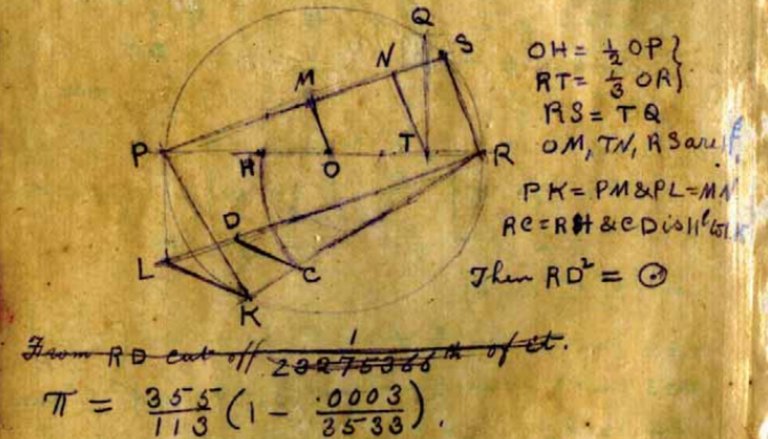 Q
S
N
M
P H O T R
D
L C
K
OH = ½ OP}
RT = ⅓ OR}
RS = TQ
OM, TN, RS are ||ˡ
PK = PM & PL = MN
RC = RH & CD is ||ˡ to LK
Then RD² = ⊙
From RD cut off 1/23275366 th of it.
π = 355/113 (1 - .0003/3533).